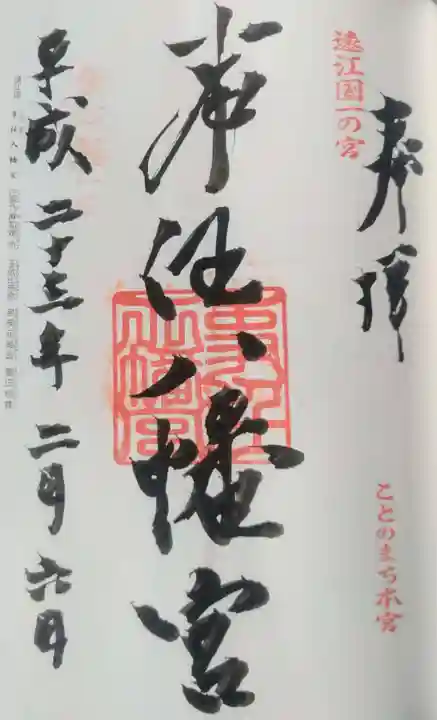 奉拝
遠江国一の宮
ことのまち本宮
事任八幡宮
平成二十三年二月六日